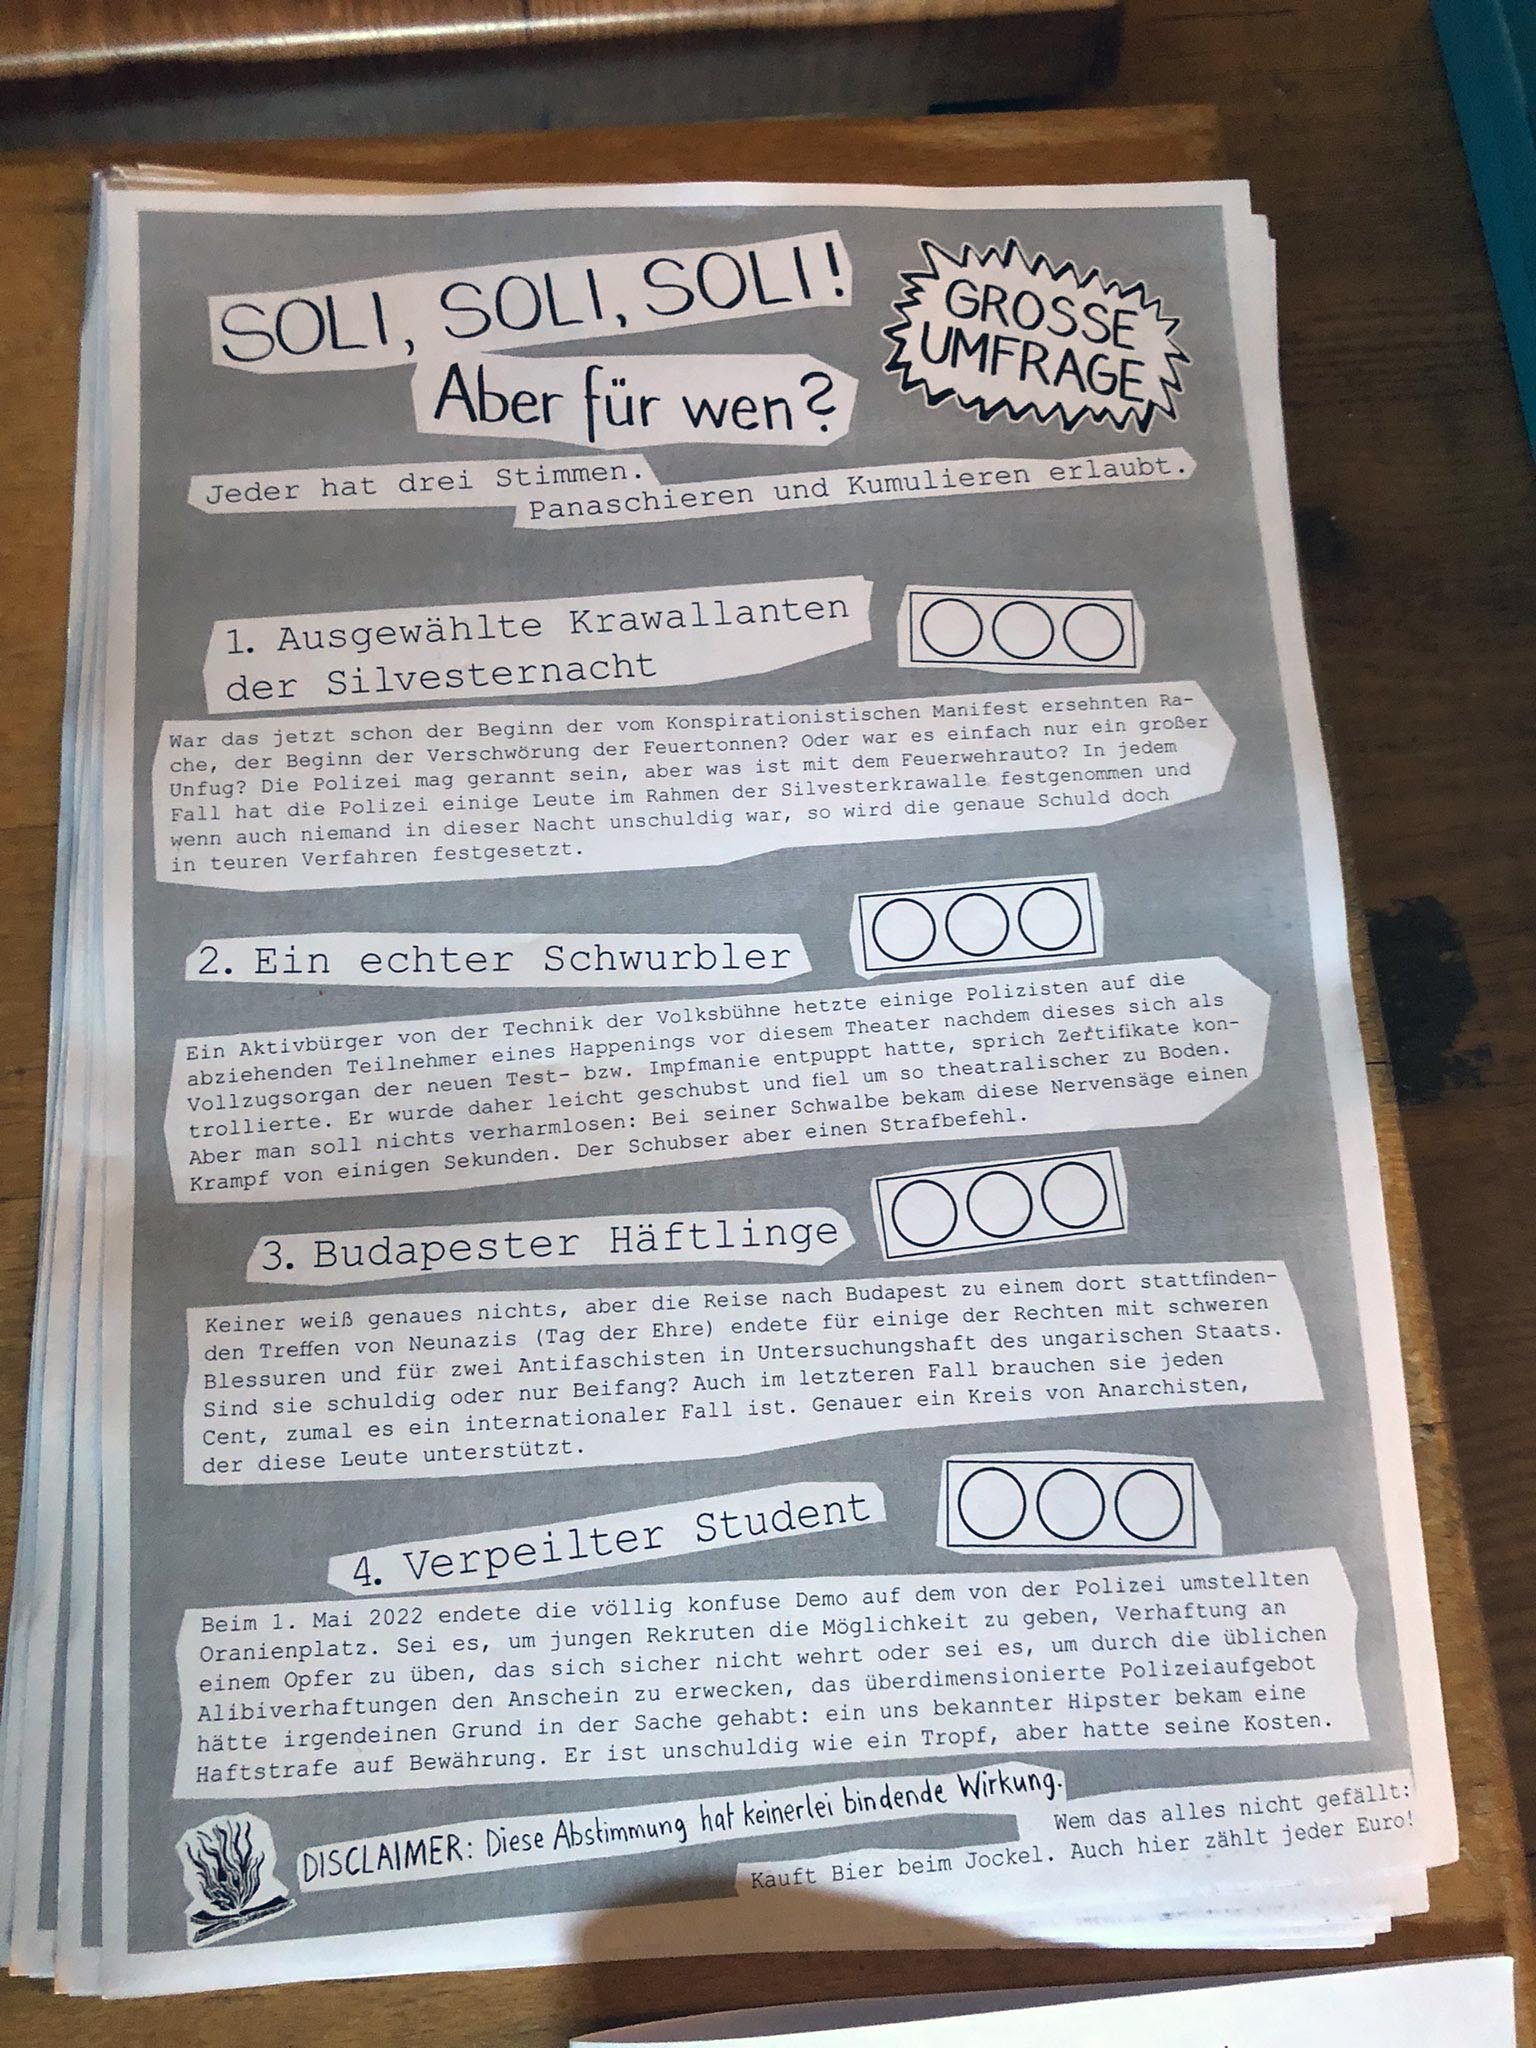 SOLI, SOLI, SOLI!
Aber für wen?
GROSSE
UMFRAGE
Jeder hat drei Stimmen.
Panaschieren und Kumulieren erlaubt.
1. Ausgewählte Krawallanten
der Silvesternacht
War das jetzt schon der Beginn der vom Konspirationistischen Manifest ersehnten Ra-
che, der Beginn der Verschwörung der Feuertonnen? Oder war es einfach nur ein großer
Unfug? Die Polizei mag gerannt sein, aber was ist mit dem Feuerwehrauto? In jedem
Fall hat die Polizei einige Leute im Rahmen der Silvesterkrawalle festgenommen und
wenn auch niemand in dieser Nacht unschuldig war, so wird die genaue Schuld doch
in teuren Verfahren festgesetzt.
2. Ein echter Schwurbler
Ein Aktivbürger von der Technik der Volksbühne hetzte einige Polizisten auf die
abziehenden Teilnehmer eines Happenings vor diesem Theater nachdem dieses sich als
Vollzugsorgan der neuen Test- bzw. Impfmanie entpuppt hatte, sprich Zertifikate kon-
trollierte. Er wurde daher leicht geschubst und fiel um so theatralischer zu Boden.
Aber man soll nichts verharmlosen: Bei seiner Schwalbe bekam diese Nervensäge einen
Krampf von einigen Sekunden. Der Schubser aber einen Strafbefehl.
3. Budapester Häftlinge
Keiner weiß genaues nichts, aber die Reise nach Budapest zu einem dort stattfinden-
den Treffen von Neunazis (Tag der Ehre) endete für einige der Rechten mit schweren
Blessuren und für zwei Antifaschisten in Untersuchungshaft des ungarischen Staats.
Sind sie schuldig oder nur Beifang? Auch im letzteren Fall brauchen sie jeden
Cent, zumal es ein internationaler Fall ist. Genauer ein Kreis von Anarchisten,
der diese Leute unterstützt.
4. Verpeilter Student
Beim 1. Mai 2022 endete die völlig konfuse Demo auf dem von der Polizei umstellten
Oranienplatz. Sei es, um jungen Rekruten die Möglichkeit zu geben, Verhaftung an
einem Opfer zu üben, das sich sicher nicht wehrt oder sei es, um durch die üblichen
Alibiverhaftungen den Anschein zu erwecken, das überdimensionierte Polizeiaufgebot
hätte irgendeinen Grund in der Sache gehabt: ein uns bekannter Hipster bekam eine
Haftstrafe auf Bewährung. Er ist unschuldig wie ein Tropf, aber hatte seine Kosten.
DISCLAIMER: Diese Abstimmung hat keinerlei bindende Wirkung.
Wem das alles nicht gefällt:
Kauft Bier beim Jockel. Auch hier zählt jeder Euro!